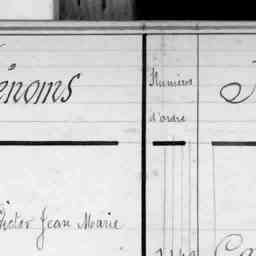 énoms
Numéros
d'ordre
Victor Jean Marie